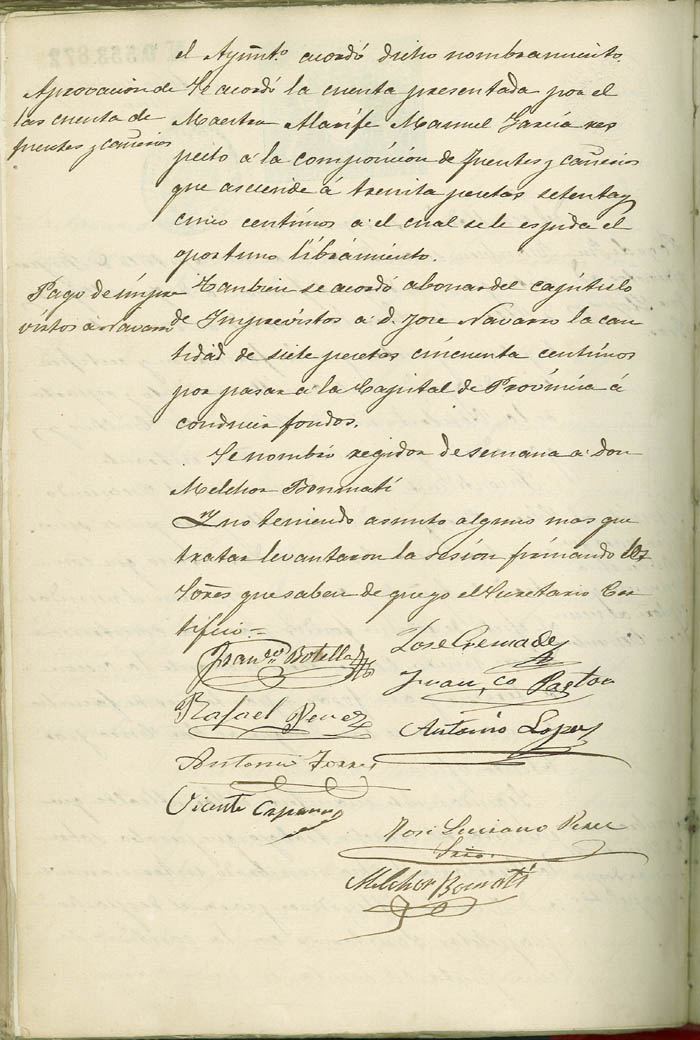 el Ayunto. acordó dicho nombramiento.
Aprovacion de
las cuenta de
fuentes y cañerios
Se acordó la cuenta presentada por el
Maestro Alarife Manuel García res
pecto á la composición de fuentes y cañerios
que asciende á treinta pesetas setenta y
cinco centimos á el cual se le espida el
oportuno libramiento.
Pago de impre
vistos a Navarro
Tanbien se acordó abonar del capitulo
de Imprevistos a D. Jose Navarro la can
tidad de siete pesetas cincuenta centimos
por pasar a la Capital de Provincia á
conducir fondos.
Se nombró regidor de semana a don
Melchor Bonmatí
Y no teniendo asunto alguno mas que
tratar levantaron la sesión firmando los
Sores que saben de que yo el Secretario Cer
tifico =
Franco. Botella
Jose Cremades
Juan, co Pastor
Rafael Perez
Antonio Lopez
Antonio Torres
Vicente
José Luciano Perez
Srio.
Melchor Bonmatí